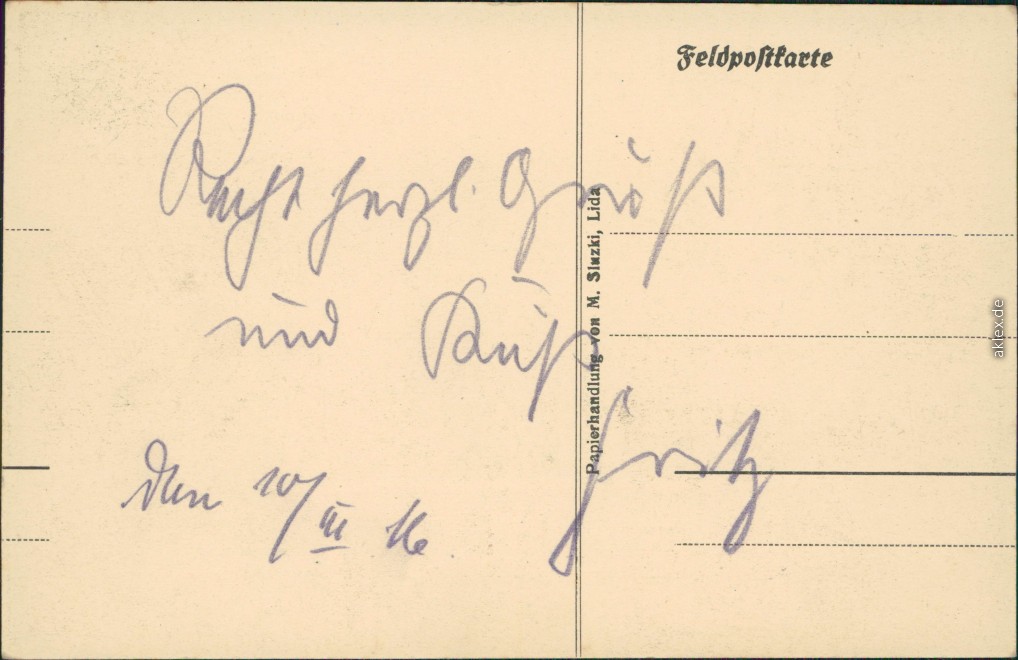 Feldpostkarte
Recht herzl. Gruß
und Kuß
Fritz
Den 10/III 16
Papierhandlung von M. Sluzki, Lida
aklex.de